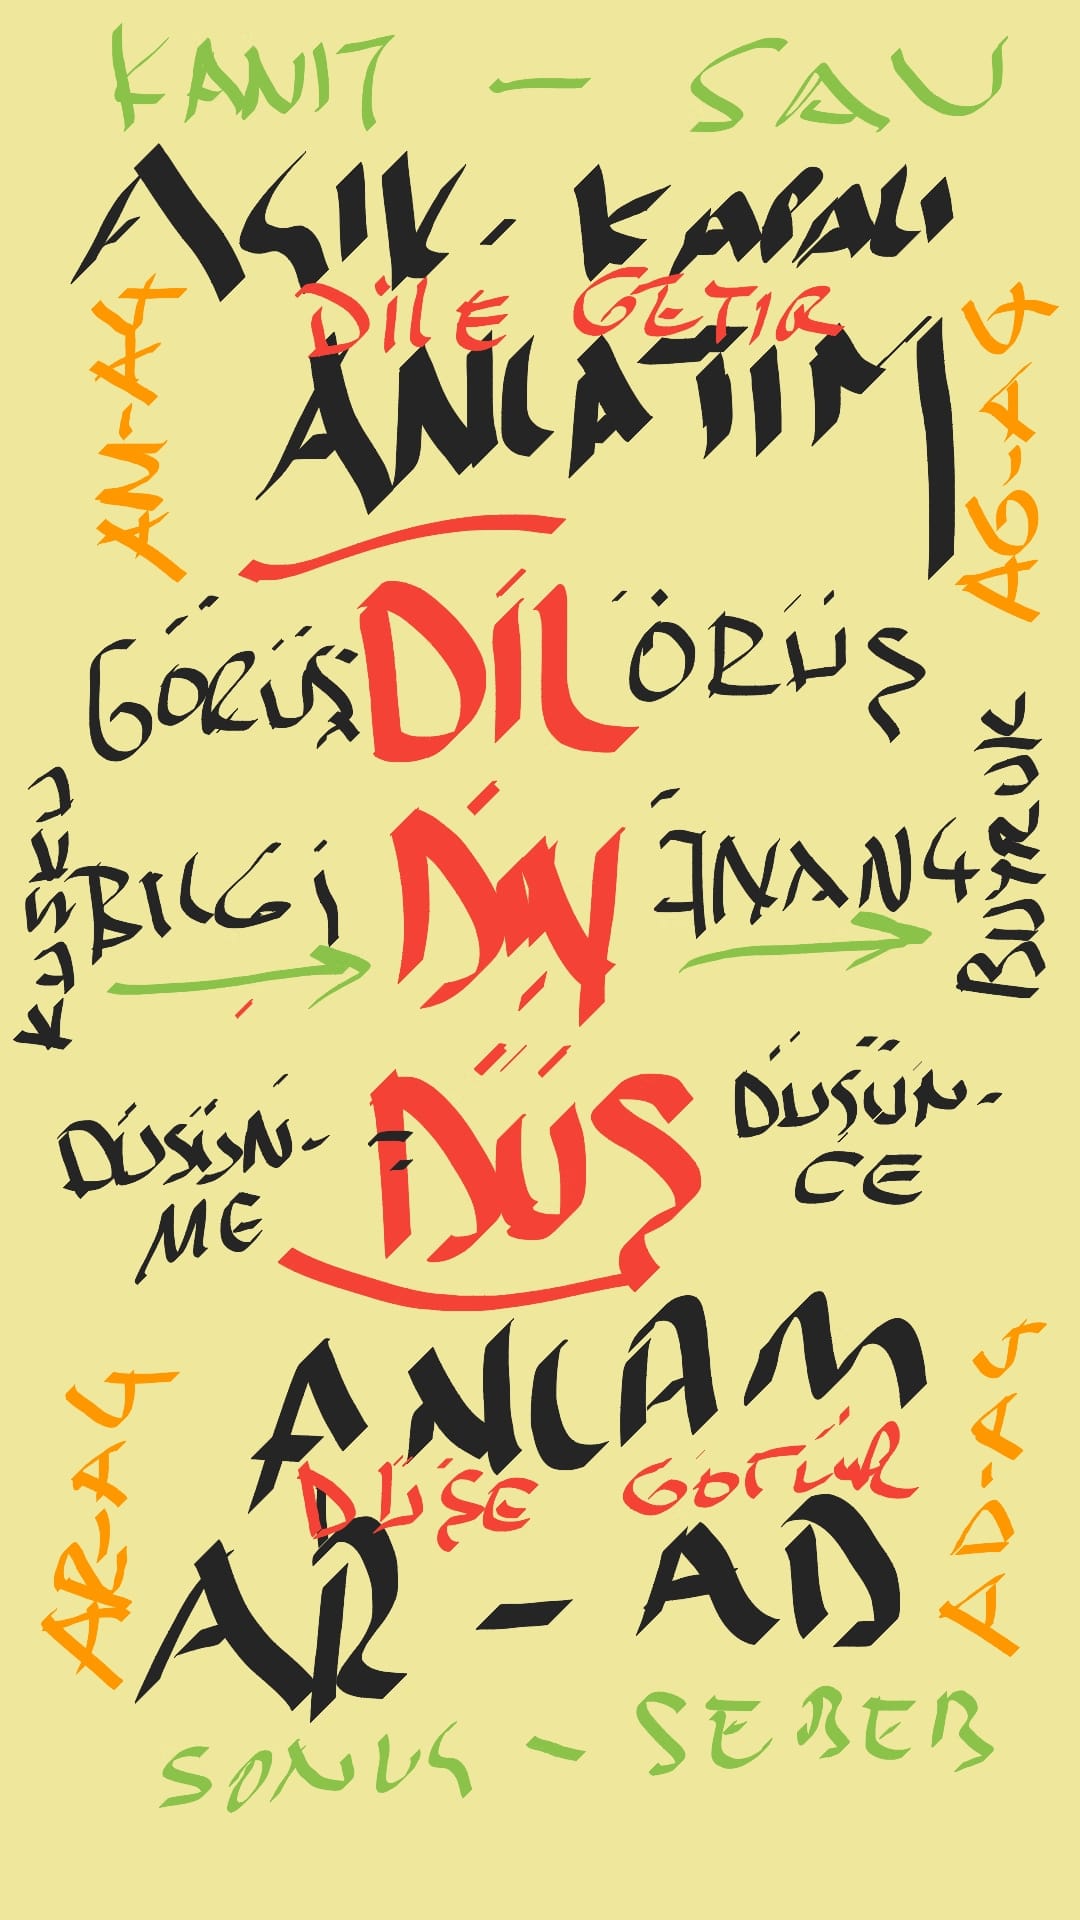 KANIT - SAV
AÇIK - KAPALI
DİLE GETİR
ANLATIM
AM-AÇ
AG-AÇ
GÖRÜŞ DİL ÖRÜŞ
KUŞKU
BİLGİ DİN İNANÇ
BUYRUK
DÜŞÜN- DÜŞ DÜŞÜN-
ME CE
ANLAM
DÜŞE GÖTÜR
AR - AD
AR-AÇ
AD-AÇ
SONUÇ - SEBEB